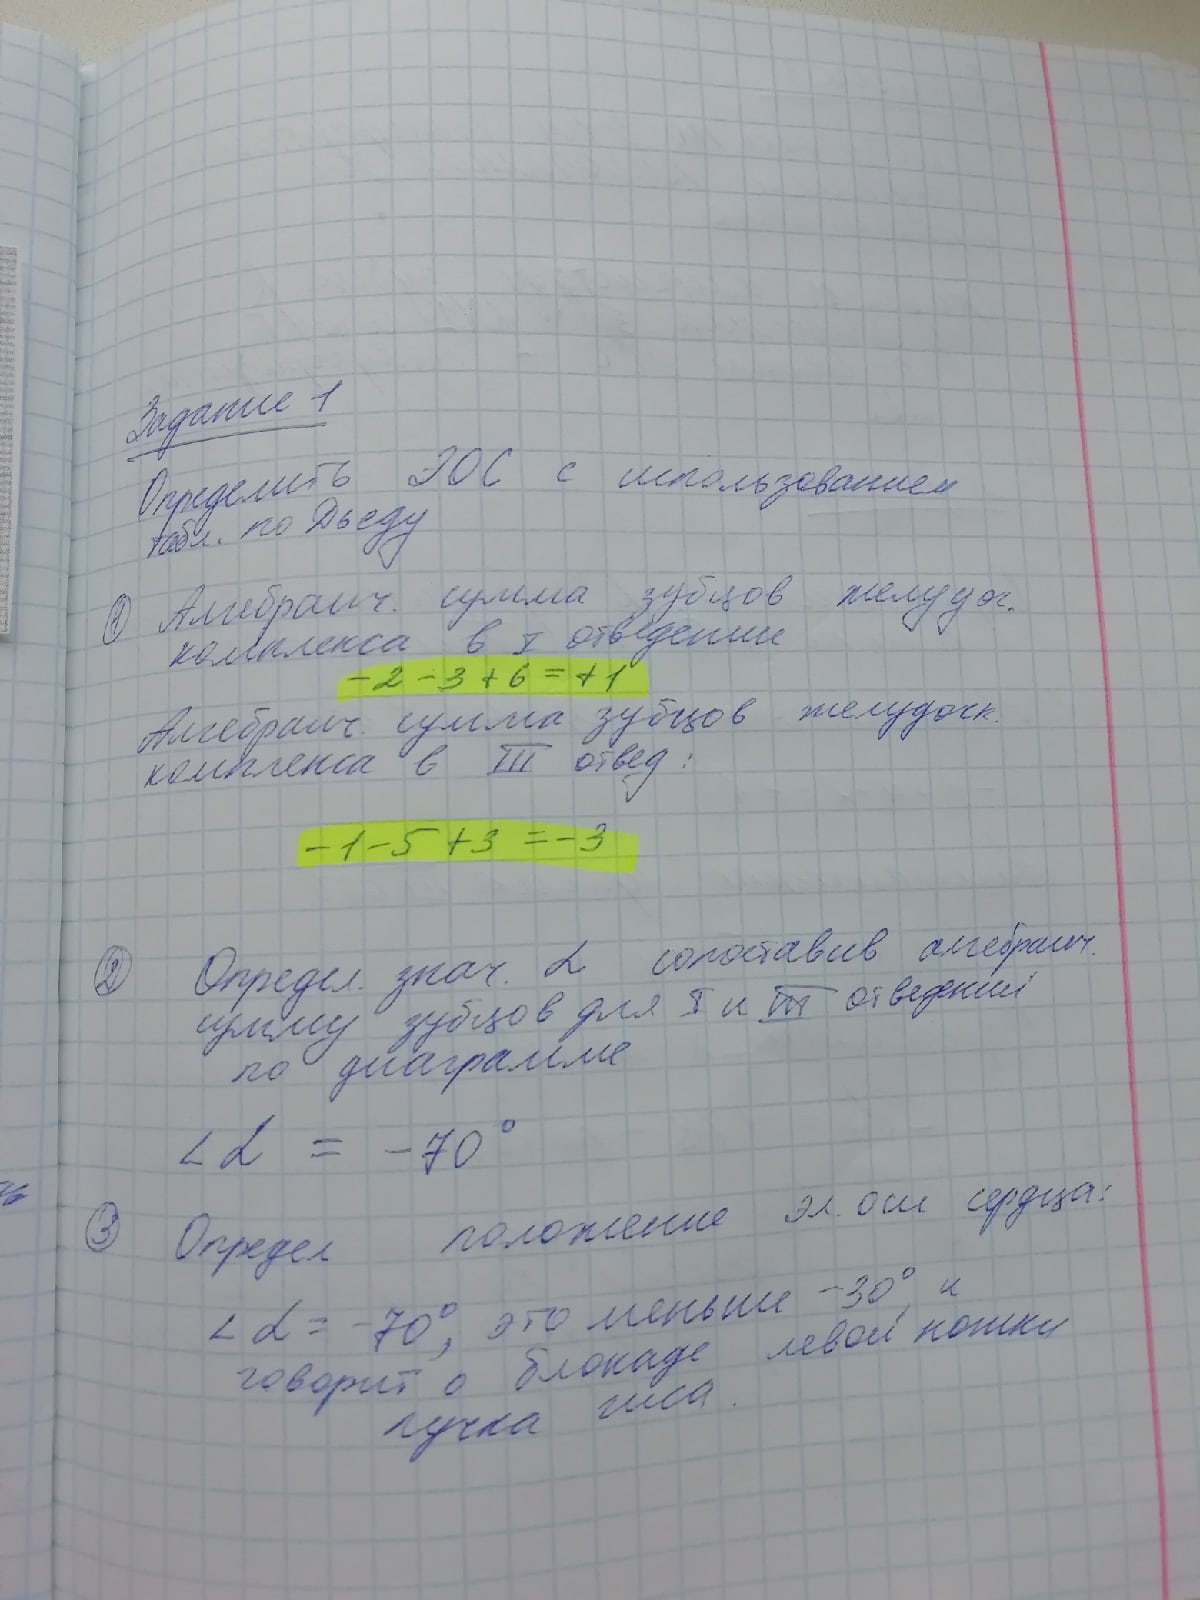 Задание 1
Определить ЭОС с использованием
табл. по Дьеду
① Алгебраич. сумма зубцов желудоч.
комплекса в I отведении
-2 -3 +6 = +1
Алгебраич. сумма зубцов желудочк.
комплекса в III отвед:
-1 -5 +3 = -3
② Определ. знач. α сопоставив алгебраич.
сумму зубцов для I и III отведений
по диаграмме
∠α = -70°
③ Определ положение эл. оси сердца:
∠α = -70°, это меньше -30°, и
говорит о блокаде левой ножки
пучка гиса.